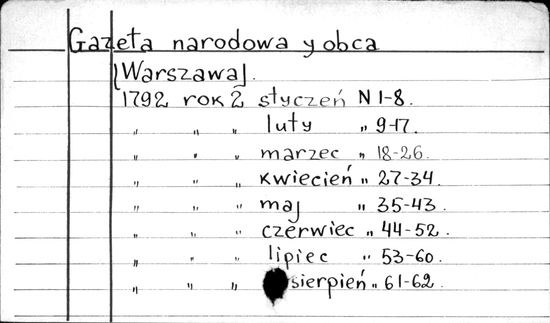 Gazeta narodowa y obca
[Warszawa].
1792 rok 2 styczeń N 1-8.
" " " luty " 9-17.
" " " marzec " 18-26.
" " " kwiecień " 27-34.
" " " maj " 35-43.
" " " czerwiec " 44-52.
" " " lipiec " 53-60.
" " " sierpień " 61-62.